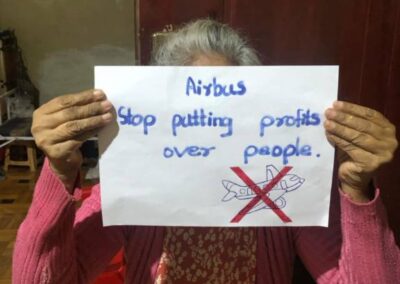 Airbus
Stop putting profits
over people.